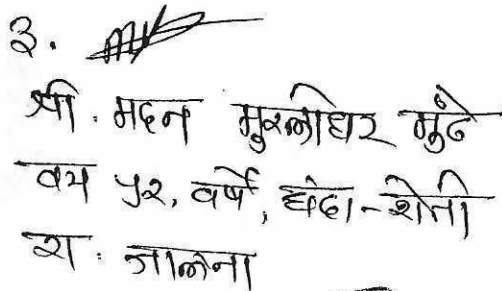 ३.
श्री. मदन मुरलीधर मुंढे
वय ५२, वर्षे, धंदा-शेती
रा. जालना